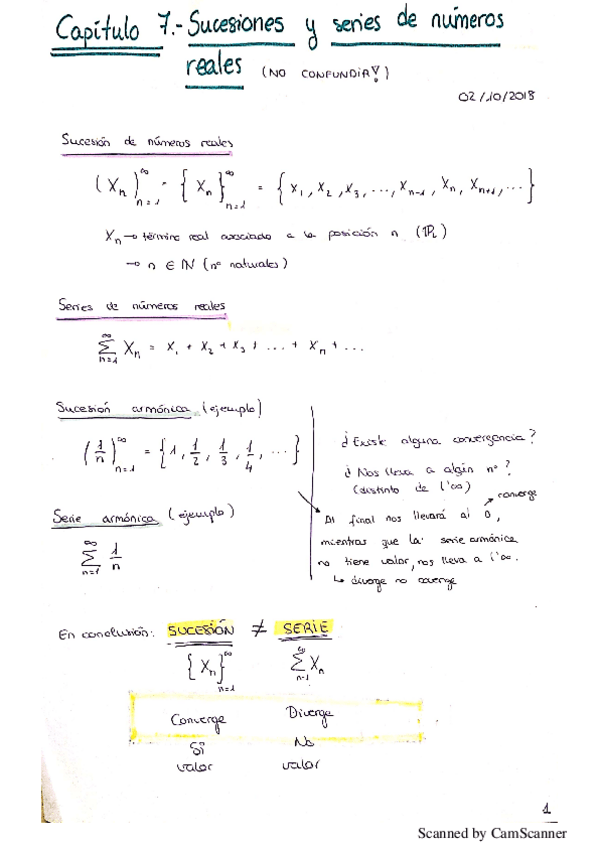 Capítulo 7.- Sucesiones y series de números
reales (NO CONFUNDIR!)
02/10/2018
Sucesión de números reales
(Xn)∞n=1 = {Xn}∞n=1 = {X1, X2, X3, ..., Xn-1, Xn, Xn+1, ...}
Xn → término real asociado a la posición n (ℝ)
→ n ∈ ℕ (nº naturales)
Series de números reales
∑∞n=1 Xn = X1 + X2 + X3 + ... + Xn + ...
Sucesión armónica (ejemplo)
(1/n)∞n=1 = {1, 1/2, 1/3, 1/4, ...}
Serie armónica (ejemplo)
∑∞n=1 1/n
¿Existe alguna convergencia?
¿Nos lleva a algún nº?
(distinto de l'∞)
converge
Al final nos llevará al 0,
mientras que la serie armónica
no tiene valor, nos lleva a l'∞.
↳ diverge no converge
En conclusión: SUCESIÓN ≠ SERIE
{Xn}∞n=1 ∑∞n=1 Xn
Converge Diverge
Sí No
valor valor
1
Scanned by CamScanner